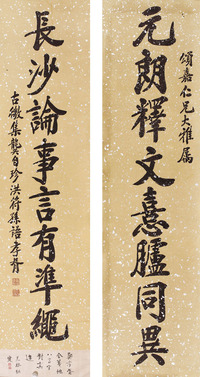 頌嘉仁兄大雅属
元朗釋文憙臚同異
長沙論事言有準繩
古微集龔自珍洪符孫語孝胥